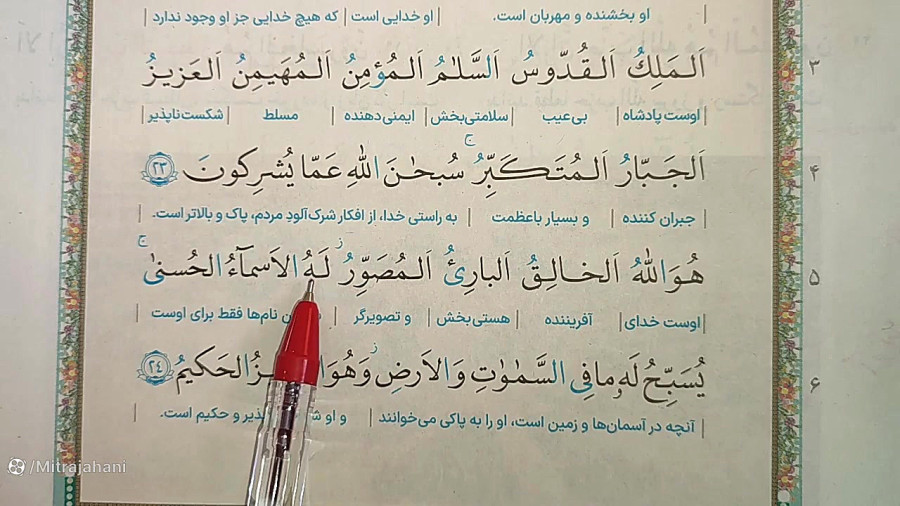 او بخشنده و مهربان است. | او خدایی است | که هیچ خدایی جز او وجود ندارد
۳ اَلمَلِكُ القُدّوسُ السَّلٰمُ المُؤمِنُ المُهَيمِنُ العَزيزُ
اوست پادشاه | بی‌عیب | سلامتی‌بخش | ایمنی‌دهنده | مسلط | شکست‌ناپذیر
۴ اَلجَبّارُ المُتَكَبِّرُ ج سُبحٰنَ اللّٰهِ عَمّا يُشرِكونَ ٢٣
جبران کننده | و بسیار باعظمت | به راستی خدا، از افکار شرک‌آلودِ مردم، پاک و بالاتر است.
۵ هُوَ اللّٰهُ الخالِقُ البارِئُ المُصَوِّرُ ز لَهُ الاَسماۤءُ الحُسنىٰ ج
اوست خدای | آفریننده | هستی‌بخش | و تصویرگر | نام‌ها فقط برای اوست
۶ يُسَبِّحُ لَهو ما فِى السَّمٰوٰتِ وَ الاَرضِ ز وَ هُوَ الحَكيمُ ٢٤
آنچه در آسمان‌ها و زمین است، او را به پاکی می‌خوانند | و او و حکیم است.
/Mitrajahani